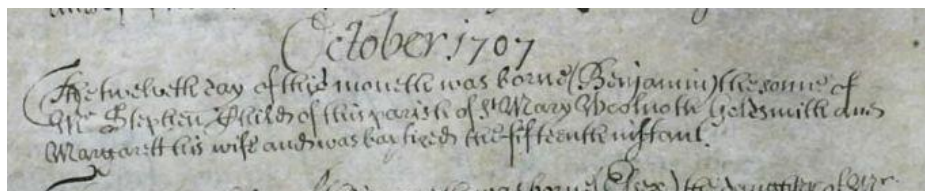 October 1707
The twelveth day of this moneth was borne (Benjamin) the sonne of
Mr Stephen Child of this parish of St Mary Woolnoth Goldsmith and
Margarett his wife and was baptized the fifteenth instant.
the daughter of Mr